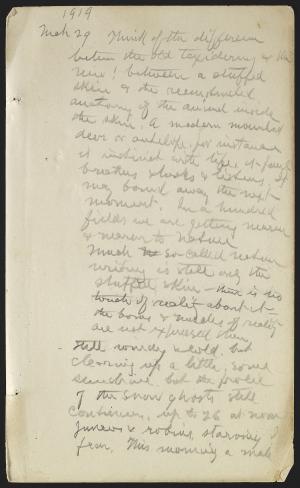 1914
Mch 29 Think of the difference
between the old taxidermy & the
new! between a stuffed
skin & the reconstructed
anatomy of the animal inside
the skin. A modern mounted
deer or antelope, for instance
is instinct with life, it
breathes & looks & listens, it
may bound away the next
moment. In a hundred
fields we are getting nearer
& nearer to nature
Much so-called nature
writing is still only the
stuffed skin — there is no
touch of reality about it —
the bones & muscles of reality
are not expressed there.
- Still windy & cold, but
clearing up a little, some
sunshine, but the
of the snow ghosts still
continues, up to 26 at noon
Juncos & robins, starving I
fear. This morning a male